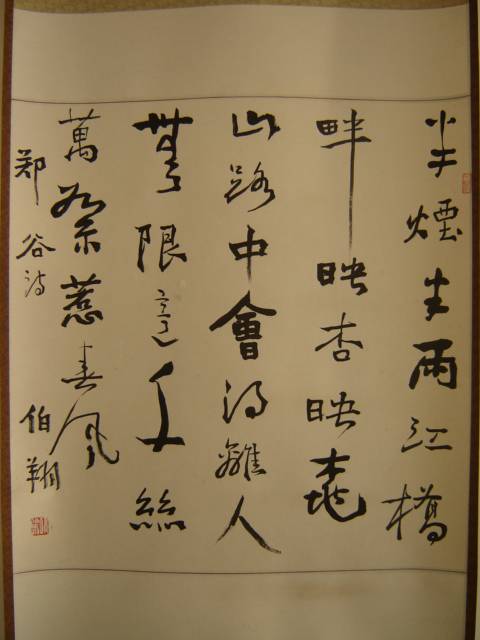 半煙半雨江橋
畔映杏映桃
山路中會得離人
無限意千絲
萬絮惹春風
郑谷诗 伯翔